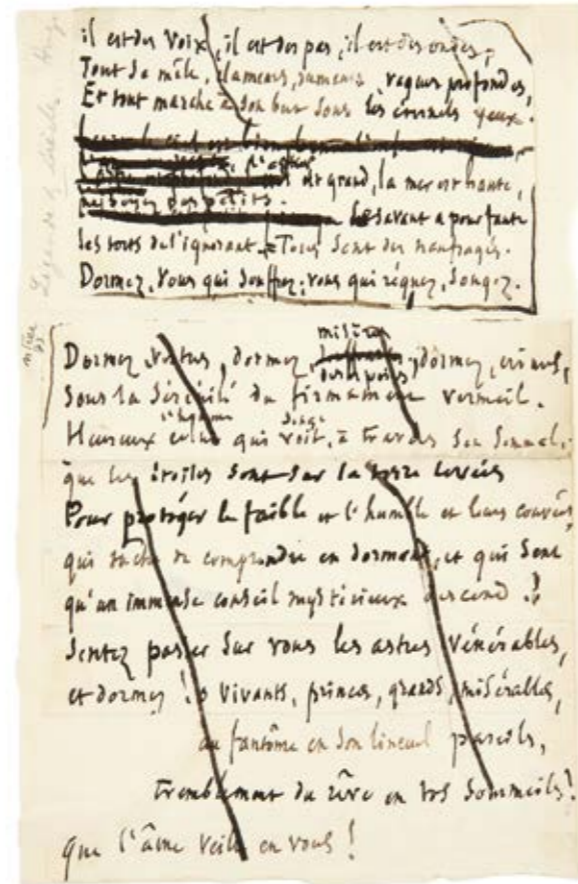 il est des voix, il est des pas, il est des ondes;
Tout se mêle, clameurs, rumeurs, vagues profondes,
Et tout marche à son but sous les éternels yeux.
est grand, la mer est haute,
ne soyez pas petits.
Le savant a pour faute
les torts de l'ignorant. Tous sont des naufragés.
Dormez, vous qui souffrez; vous qui régnez, songez.
misères
Dormez, vertus, dormez, dormez, crimes,
désespoirs
Sous la sérénité du firmament vermeil.
l'homme songe
Heureux celui qui voit, à travers son sommeil,
que les étoiles sont sur la terre levées
Pour protéger le faible et l'humble et leurs couvées,
qui tâche de comprendre en dormant, et qui sent
qu'un immense conseil mystérieux descend!
Sentez passer sur vous les astres vénérables,
et dormez! ô vivants, princes, grands, misérables,
au fantôme en son linceul pareils,
tremblement du rêve en vos sommeils!
que l'âme veille en vous!
Légende des siècles. Hugo